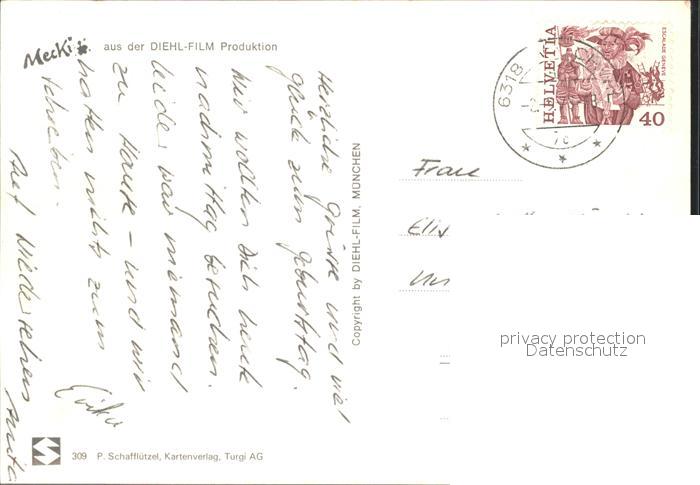 Mecki aus der DIEHL-FILM Produktion
Herzliche Grüsse und viel
Glück zum Geburtstag.
Wir wollten Dich heute
nachmittag besuchen.
leider war niemand
zu Hause - und wir
hatten nichts zum
schreiben.
Auf Wiedersehen Anita
Erika
Copyright by DIEHL-FILM, MÜNCHEN
309 P. Schafflützel, Kartenverlag, Turgi AG
6318
HELVETIA
ESCALADE GENÈVE
40
Frau
Elis
privacy protection
Datenschutz